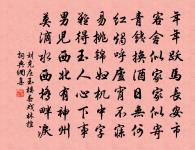 年年躍馬長安市
客舍似家家似寄
青錢換酒日無何
紅燭呼盧宵不寐
易挑錦婦機中字
難得玉人心下事
男兒西北有神州
莫滴水西橋畔淚
刘克庄玉楼春戏林推
詞典網集